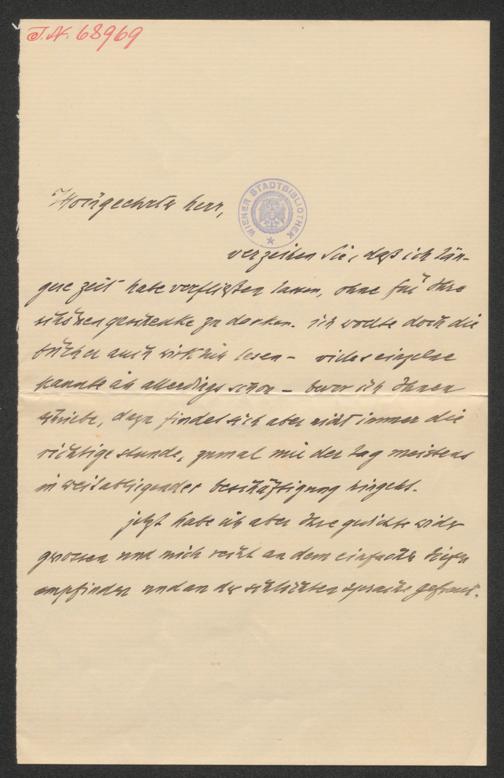 J.N. 68969
WIENER STADTBIBLIOTHEK
Hochgeehrter herr,
verzeihen Sie, daß ich län-
gere zeit habe verfließen lassen, ohne für Ihre
schönen geschenke zu danken. ich wollte doch die
bücher auch wirklich lesen – vieles einzelne
kannte ich allerdings schon – bevor ich Ihnen
schriebe, dazu findet sich aber nicht immer die
richtige stunde, zumal mir der tag meistens
in weitabliegender beschäftigung hingeht.
jetzt habe ich aber Ihre gedichte wider
genossen und mich recht an dem einfachen tiefen
empfinden und an der schlichten sprache gefreut.